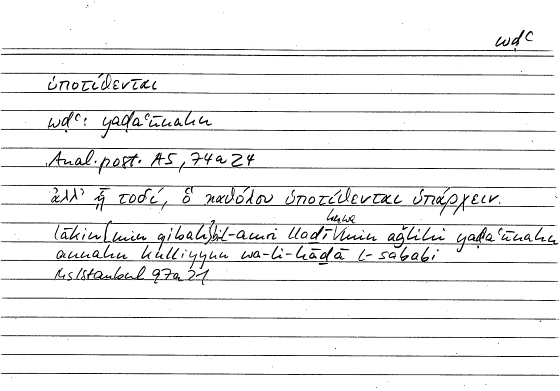 wḍʿ
ὑποτίθενται
wḍʿ: yaḍaʿūnahu
Anal. post. A5, 74a24
ἀλλ' ᾗ τοδί, ὃ καθόλου ὑποτίθενται ὑπάρχειν.
huwa
lākin [min qibali] bil-amri lladī min aǧlihi yaḍaʿūnahu
annahu kulliyyun wa-li-hādā l-sababi
Ms Istanbul 97a21